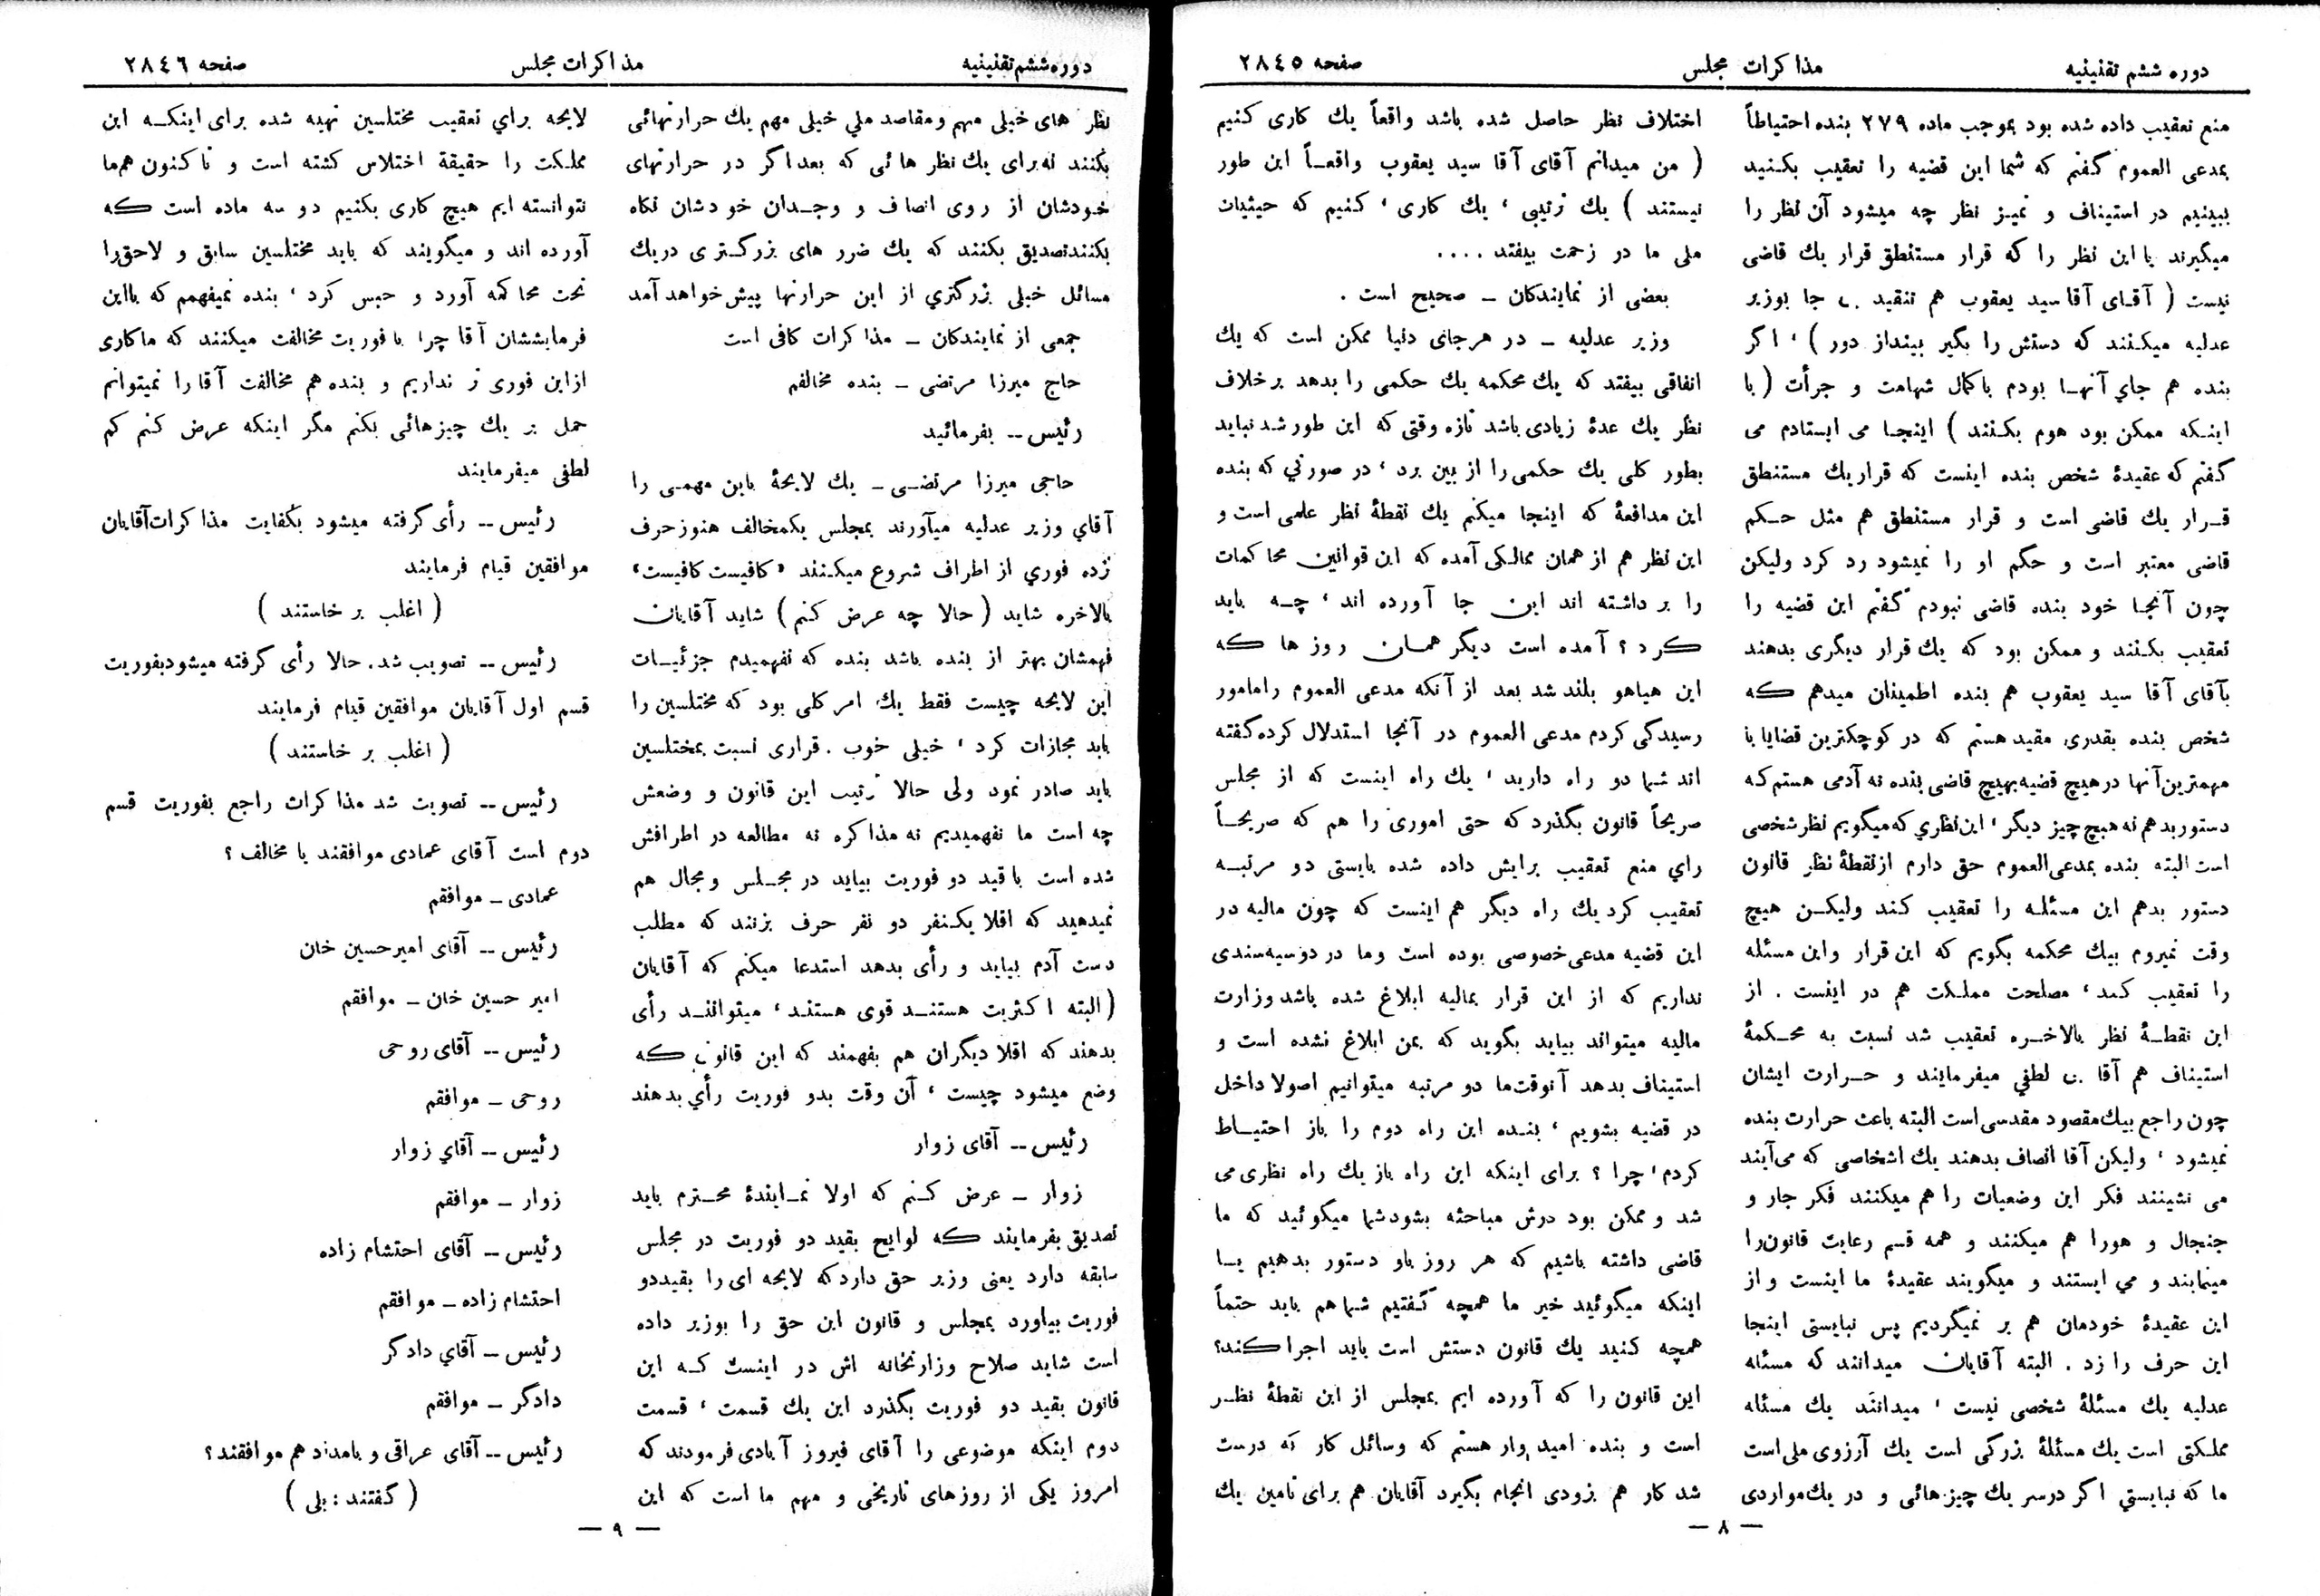 دوره ششم تقنینیه
مذاکرات مجلس
صفحه ۲۸٤٥
منع تعقیب داده شده بود بموجب ماده ۲۷۹ بنده احتیاطاً
بمدعی العموم گفتم که شما این قضیه را تعقیب بکنید
ببینیم در استیناف و تمیز نظر چه میشود آن نظر را
میگیرند با این نظر را که قرار مستنطق قرار یك قاضی
نیست ( آقای آقا سید یعقوب هم تنقید جا بوزیر
عدلیه میکنند که دستش را بگیر بینداز دور ) ، اگر
بنده هم جاي آنها بودم با کمال شهامت و جرأت ( با
اینکه ممکن بود هوم بکنند ) اینجا می ایستادم می
گفتم که عقیدۀ شخص بنده اینست که قرار یك مستنطق
قرار یك قاضی است و قرار مستنطق هم مثل حکم
قاضی معتبر است و حکم او را نمیشود رد کرد ولیکن
چون آنجا خود بنده قاضی نبودم گفتم این قضیه را
تعقیب بکنند و ممکن بود که یك قرار دیگری بدهند
بآقای آقا سید یعقوب هم بنده اطمینان میدهم که
شخص بنده بقدری مقید هستم که در کوچکترین قضایا با
مهمترین آنها در هیچ قضیه بهیچ قاضی بنده نه آدمی هستم که
دستور بدهم نه هیچ چیز دیگر ، این نظري که میگویم نظر شخصی
است البته بنده بمدعی العموم حق دارم از نقطۀ نظر قانون
دستور بدهم این مسئله را تعقیب کند ولیکن هیچ
وقت نمیروم بیك محکمه بگویم که این قرار و این مسئله
را تعقیب کند ، مصلحت مملکت هم در اینست . از
این نقطۀ نظر بالاخره تعقیب شد نسبت به محکمۀ
استیناف هم آقا لطفي میفرمایند و حرارت ایشان
چون راجع بیك مقصود مقدسی است البته باعث حرارت بنده
نمیشود ، ولیکن آقا انصاف بدهند یك اشخاصی که می آیند
می نشینند فکر این وضعیات را هم میکنند فکر جار و
جنجال و هورا هم میکنند و همه قسم رعایت قانون را
مینمایند و می ایستند و میگویند عقیدۀ ما اینست و از
این عقیدۀ خودمان هم بر نمیگردیم پس نبایستی اینجا
این حرف را زد . البته آقایان میدانند که مسئله
عدلیه یك مسئلۀ شخصی نیست ، میدانند یك مسئله
مملکتی است یك مسئلۀ بزرگی است یك آرزوی ملی است
ما که نبایستي اگر در سر یك چیز هائی و در یك مواردی
اختلاف نظر حاصل شده باشد واقعاً یك کاری کنیم
( من میدانم آقای آقا سید یعقوب واقعاً این طور
نیستند ) یك ترتیبی ، یك کاری ، کنیم که حیثیات
ملی ما در زحمت بیفتد ....
بعضی از نمایندگان ــ صحیح است .
وزیر عدلیه ــ در هر جای دنیا ممکن است که یك
اتفاقی بیفتد که یك محکمه یك حکمی را بدهد بر خلاف
نظر یك عدۀ زیادی باشد تازه وقتی که این طور شد نباید
بطور کلی یك حکمی را از بین برد ، در صورتي که بنده
این مدافعۀ که اینجا میکنم یك نقطۀ نظر علمی است و
این نظر هم از همان ممالکی آمده که این قوانین محاکمات
را بر داشته اند این جا آورده اند ، چه باید
کرد ؟ آمده است دیگر همان روز ها که
این هیاهو بلند شد بعد از آنکه مدعی العموم را مامور
رسیدگی کردم مدعی العموم در آنجا استدلال کرده گفته
اند شما دو راه دارید ، یك راه اینست که از مجلس
صریحاً قانون بگذرد که حتی اموری را هم که صریحاً
راي منع تعقیب برایش داده شده بایستی دو مرتبه
تعقیب کرد یك راه دیگر هم اینست که چون مالیه در
این قضیه مدعی خصوصی بوده است و ما در دوسیه سندی
نداریم که از این قرار بمالیه ابلاغ شده باشد وزارت
مالیه میتواند بیاید بگوید که بمن ابلاغ نشده است و
استیناف بدهد آنوقت ما دو مرتبه میتوانیم اصولا داخل
در قضیه بشویم ، بنده این راه دوم را باز احتیاط
کردم ، چرا ؟ برای اینکه این راه باز یك راه نظری می
شد و ممکن بود درش مباحثه بشود شما میگوئید که ما
قاضی داشته باشیم که هر روز باو دستور بدهیم یا
اینکه میگوئید خیر ما همچه گفتیم شما هم باید حتماً
همچه کنید یك قانون دستش است باید اجرا کند؟
این قانون را که آورده ایم بمجلس از این نقطۀ نظر
است و بنده امیدوار هستم که وسائل کار که درست
شد کار هم بزودی انجام بگیرد آقایان هم برای تامین یك
— ۸ —
دوره ششم تقنینیه
مذاکرات مجلس
صفحه ۲۸٤٦
نظر های خیلی مهم و مقاصد ملي خیلی مهم یك حرارتهائی
بکنند نه برای یك نظر هائی که بعد اگر در حرارتهای
خودشان از روی انصاف و وجدان خودشان نگاه
بکنند تصدیق بکنند که یك ضرر های بزرگتری در یك
مسائل خیلی بزرگتري از این حرارتها پیش خواهد آمد
جمعی از نمایندگان ــ مذاکرات کافی است
حاج میرزا مرتضی ــ بنده مخالفم
رئیس ــ بفرمائید
حاجی میرزا مرتضی ــ یك لایحۀ باین مهمی را
آقاي وزیر عدلیه میآورند بمجلس یکمخالف هنوز حرف
نزده فوري از اطراف شروع میکنند «کافیست کافیست»
بالاخره شاید ( حالا چه عرض کنم ) شاید آقایان
فهمشان بهتر از بنده باشد بنده که نفهمیدم جزئیات
این لایحه چیست فقط یك امر کلی بود که مختلسین را
باید مجازات کرد ، خیلی خوب . قراری نسبت بمختلسین
باید صادر نمود ولی حالا ترتیب این قانون و وضعش
چه است ما نفهمیدیم نه مذاکره نه مطالعه در اطرافش
شده است با قید دو فوریت بیاید در مجلس و مجال هم
نمیدهید که اقلا یکنفر دو نفر حرف بزنند که مطلب
دست آدم بیاید و رأی بدهد استدعا میکنم که آقایان
(البته اکثریت هستند قوی هستند ، میتوانند رأی
بدهند که اقلا دیگران هم بفهمند که این قانون که
وضع میشود چیست ، آن وقت بدو فوریت رأي بدهند
رئیس ــ آقای زوار
زوار ــ عرض کنم که اولا نمایندۀ محترم باید
تصدیق بفرمایند که لوایح بقید دو فوریت در مجلس
سابقه دارد یعنی وزیر حق دارد که لایحه ای را بقید دو
فوریت بیاورد بمجلس و قانون این حق را بوزیر داده
است شاید صلاح وزارتخانه اش در اینست که این
قانون بقید دو فوریت بگذرد این یك قسمت ، قسمت
دوم اینکه موضوعی را آقای فیروز آبادی فرمودند که
امروز یکی از روزهای تاریخی و مهم ما است که این
لایحه براي تعقیب مختلسین تهیه شده برای اینکه این
مملکت را حقیقة اختلاس کشته است و تا کنون هم ما
نتوانسته ایم هیچ کاری بکنیم دو سه ماده است که
آورده اند و میگویند که باید مختلسین سابق و لاحق را
تحت محاکمه آورد و حبس کرد ، بنده نمیفهمم که با این
فرمایششان آقا چرا با فوریت مخالفت میکنند که ما کاری
از این فوری تر نداریم و بنده هم مخالفت آقا را نمیتوانم
حمل بر یك چیزهائی بکنم مگر اینکه عرض کنم کم
لطفی میفرمایند
رئیس ــ رأی گرفته میشود بکفایت مذاکرات آقایان
موافقین قیام فرمایند
( اغلب بر خاستند )
رئیس ــ تصویب شد. حالا رأی گرفته میشود بفوریت
قسم اول آقایان موافقین قیام فرمایند
( اغلب بر خاستند )
رئیس ــ تصویت شد مذاکرات راجع بفوریت قسم
دوم است آقای عمادی موافقند یا مخالف ؟
عمادی ــ موافقم
رئیس ــ آقای امیرحسین خان
امیر حسین خان ــ موافقم
رئیس ــ آقای روحی
روحی ــ موافقم
رئیس ــ آقاي زوار
زوار ــ موافقم
رئیس ــ آقای احتشام زاده
احتشام زاده ــ موافقم
رئیس ــ آقاي دادگر
دادگر ــ موافقم
رئیس ــ آقای عراقی و بامداد هم موافقند؟
( گفتند : بلی )
— ۹ —